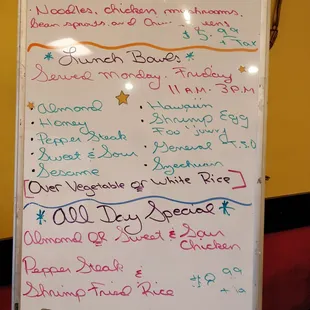 Noodles, chicken, mushrooms,
bean sprouts and
$ 99
+ Tax
Lunch Bowls
Served Monday - Friday
11 A.M. 3 P.M
• Almond
• Honey
• Pepper Steak
• Sweet & Sour
• Sesame
• Hawaiin
• Shrimp Egg
Foo
• General T.S.O
• Szechuin
[Over Vegetable or White Rice]
All Day Special
Almond OR Sweet & Sour
Chicken
Pepper Steak &
Shrimp Fried Rice
99